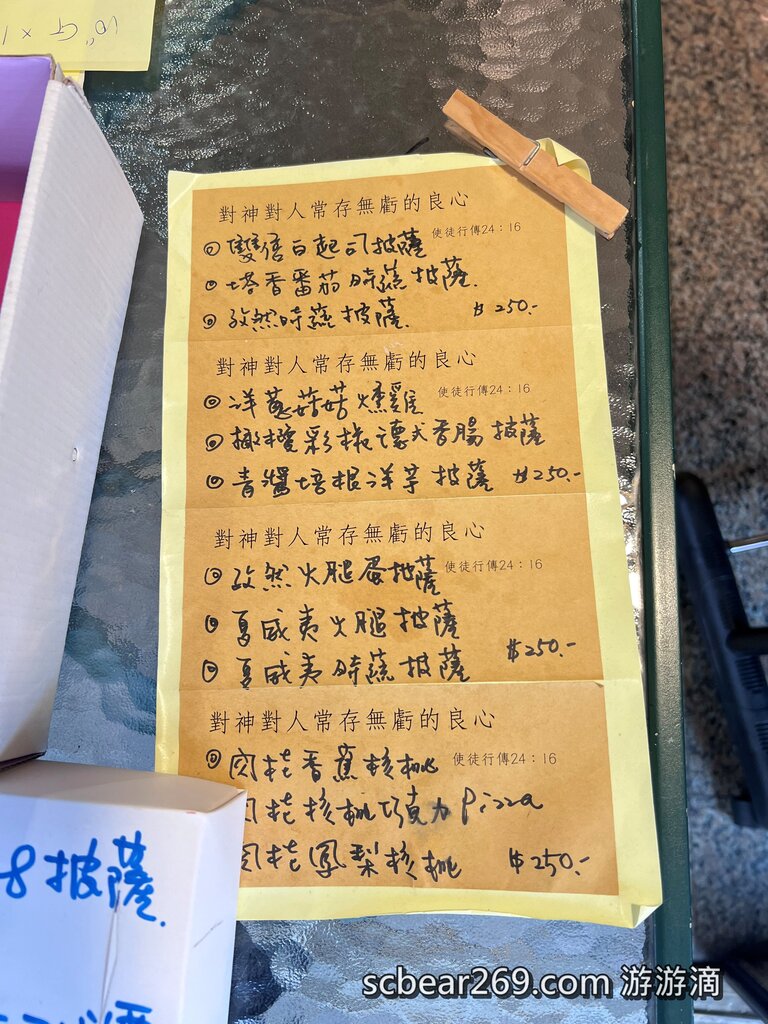 6" G x 1
對神對人常存無虧的良心
使徒行傳24：16
◎ 雙倍白起司披薩
◎ 塔香番茄時蔬披薩.
◎ 孜然時蔬披薩. $250.-
對神對人常存無虧的良心
使徒行傳24：16
◎ 洋蔥菇菇燻雞
◎ 橄欖彩椒德式香腸披薩
◎ 青醬培根洋芋披薩 $250.-
對神對人常存無虧的良心
使徒行傳24：16
◎ 孜然火腿蛋披薩
◎ 夏威夷火腿披薩
◎ 夏威夷時蔬披薩 $250.-
對神對人常存無虧的良心
使徒行傳24：16
◎ 肉桂香蕉核桃
肉桂核桃巧克力Pizza
肉桂鳳梨核桃 $250.-
8披薩.
scbear269.com 游游滴